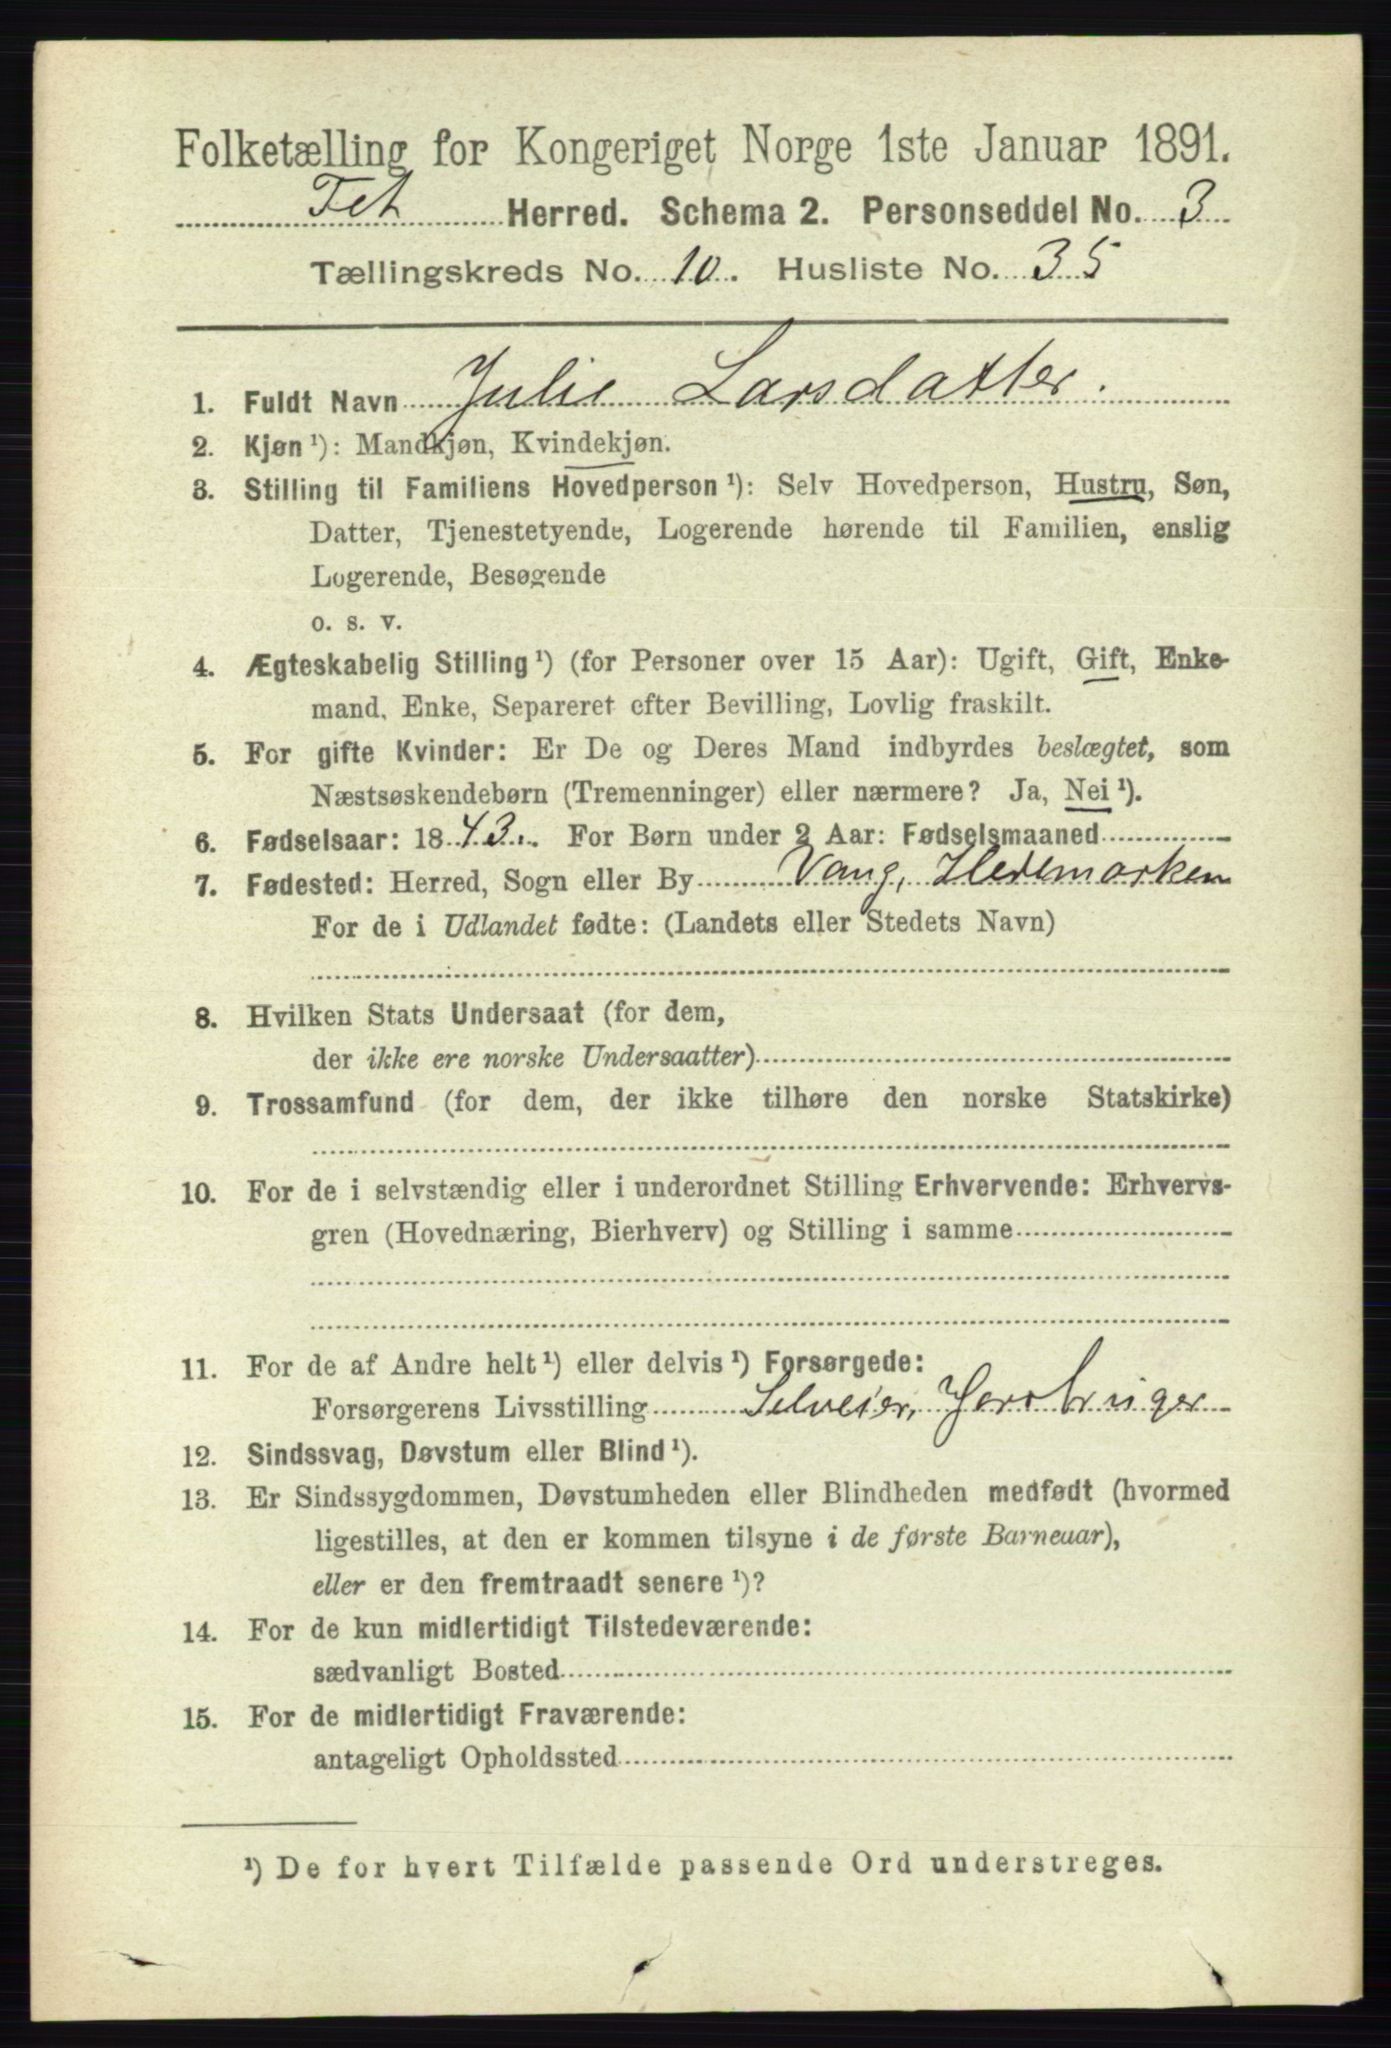 Folketælling for Kongeriget Norge 1ste Januar 1891.
Fet Herred. Schema 2. Personseddel No. 3
Tællingskreds No. 10. Husliste No. 35
1. Fuldt Navn Julie Larsdatter.
2. Kjøn ¹): Mandkjøn, Kvindekjøn.
3. Stilling til Familiens Hovedperson ¹): Selv Hovedperson, Hustru, Søn,
Datter, Tjenestetyende, Logerende hørende til Familien, enslig
Logerende, Besøgende
o. s. v.
4. Ægteskabelig Stilling ¹) (for Personer over 15 Aar): Ugift, Gift, Enke-
mand, Enke, Separeret efter Bevilling, Lovlig fraskilt.
5. For gifte Kvinder: Er De og Deres Mand indbyrdes beslægtet, som
Næstsøskendebørn (Tremenninger) eller nærmere? Ja, Nei ¹).
6. Fødselsaar: 1843. For Børn under 2 Aar: Fødselsmaaned
7. Fødested: Herred, Sogn eller By Vang, Hedemarken
For de i Udlandet fødte: (Landets eller Stedets Navn)
8. Hvilken Stats Undersaat (for dem,
der ikke ere norske Undersaatter)
9. Trossamfund (for dem, der ikke tilhøre den norske Statskirke)
10. For de i selvstændig eller i underordnet Stilling Erhvervende: Erhvervs-
gren (Hovednæring, Bierhverv) og Stilling i samme
11. For de af Andre helt ¹) eller delvis ¹) Forsørgede:
Forsørgerens Livsstilling Selveier, Jordbruger
12. Sindssvag, Døvstum eller Blind ¹).
13. Er Sindssygdommen, Døvstumheden eller Blindheden medfødt (hvormed
ligestilles, at den er kommen tilsyne i de første Barneaar),
eller er den fremtraadt senere ¹)?
14. For de kun midlertidigt Tilstedeværende:
sædvanligt Bosted
15. For de midlertidigt Fraværende:
antageligt Opholdssted
¹) De for hvert Tilfælde passende Ord understreges.